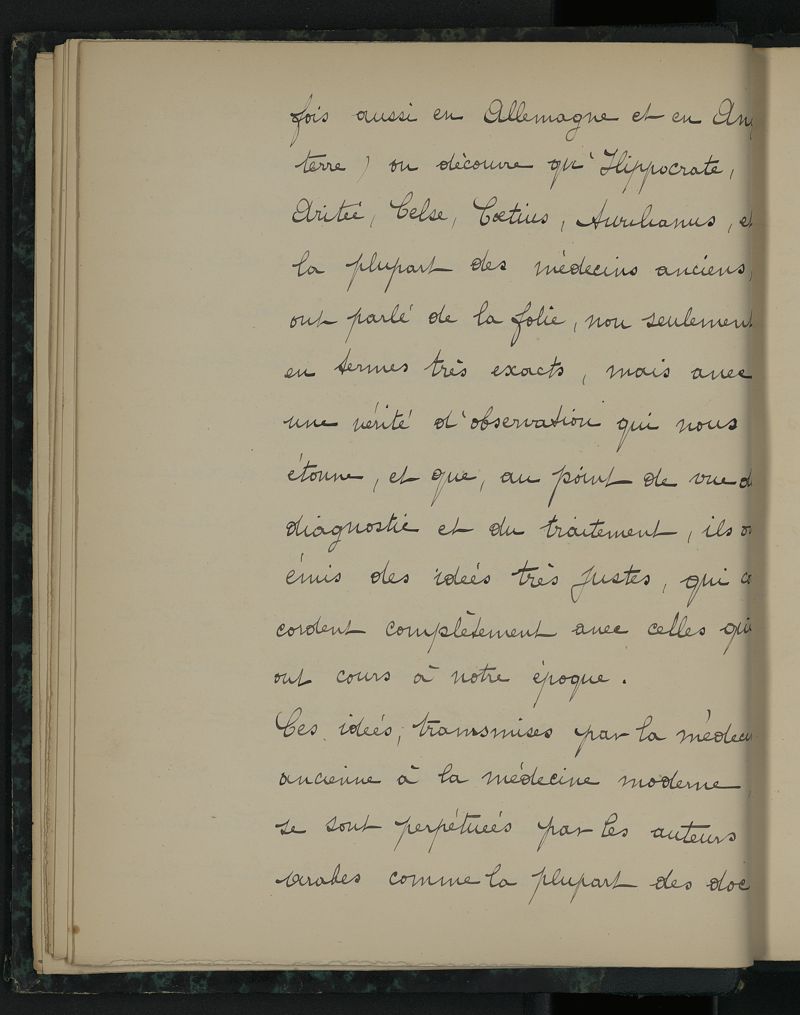 fois aussi en Allemagne et en An
terre ) on découvre qu' Hippocrate,
Aritéé, Celse, Cœtius, Aurelianus, et
la plupart des médecins anciens,
ont parlé de la folie, non seulement
en termes très exacts, mais avec
une vérité d'observation qui nous
étonne, et que, au point de vue d
diagnostic et du traitement, ils o
émis des ideés très justes, qui co
cordent complètement avec celles qui
ont cours à notre époque.
Ces ideés, transmises par la médeci
ancienne à la médecine moderne,
se sont perpétueés par les auteurs
arabes comme la plupart des doc